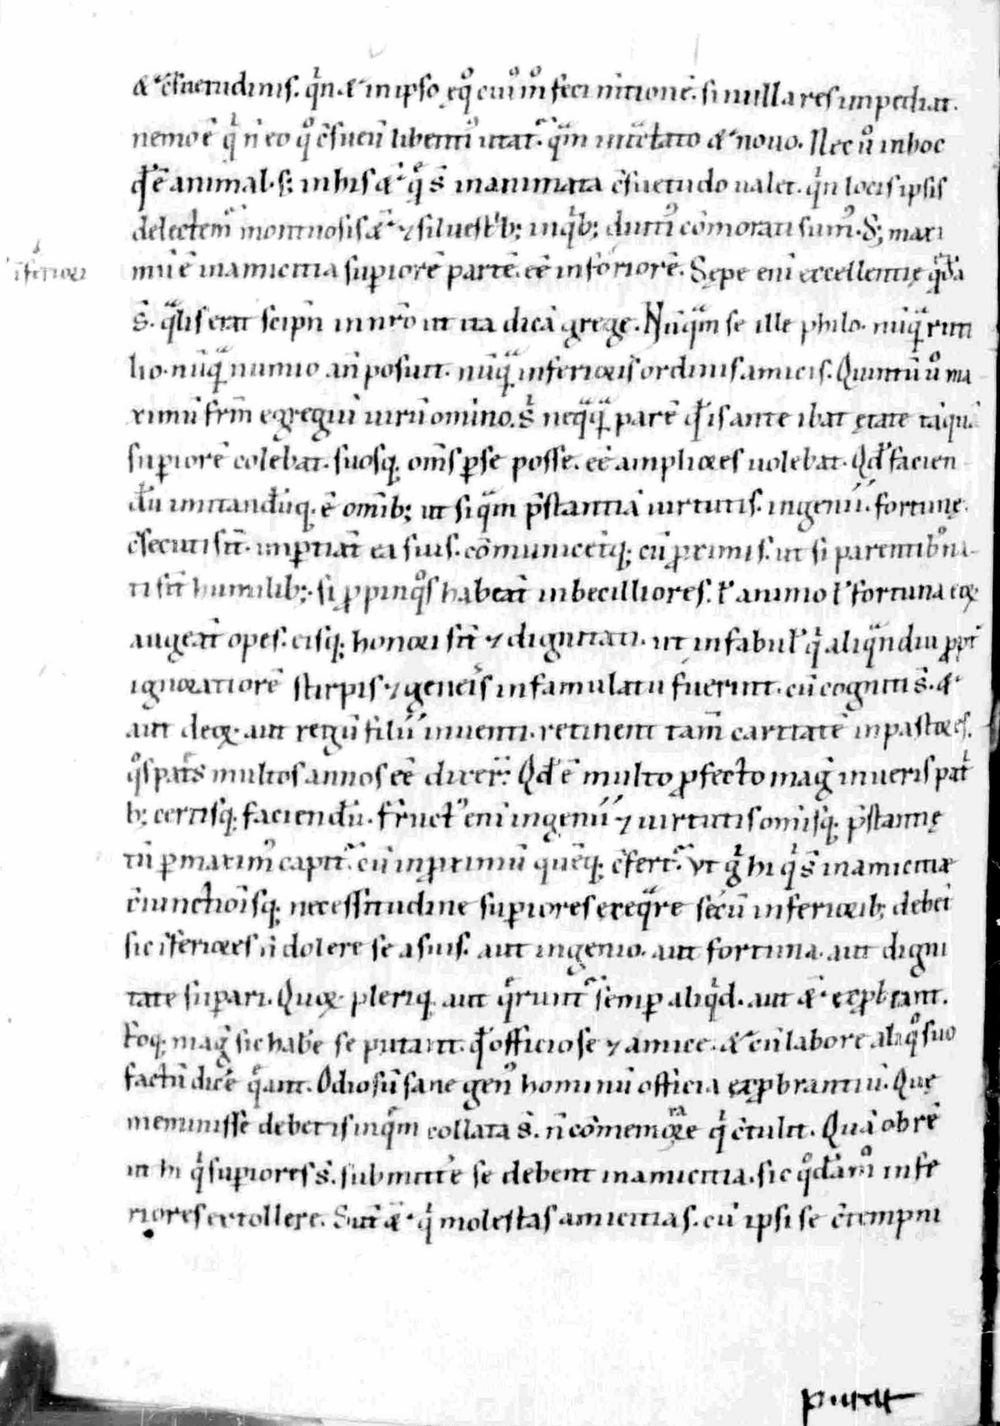 &̄ c̄suetudinis. qͥn &̄ in ipso eqͦ cuiͦ mͦ feci m̄tionē. si nulla res impediat.
nemo ē qͥ n̄ eo qͦ c̄sueū libentiꝰ utat᷑. qͣm int̄ctato &̄ nouo. Nec uͦ in hoc
qđ ē animal. s; in his &̄ qͤ s̄ inanimata c̄suetudo ualet. qͥn locis ipsis
delectem᷑ montuosis &̄ ⁊ siluestͥb; inqͥb; diutiꝰ cōmorati sumꝰ. S; maxi
mū ē in amicitia supiorē partē. eē inferiorē. Sępe enī excellentię qͤdā
īferiori
s̄. qͣlis erat scipīo in nr̄o ut ita dicā gregę. Nūqͣm se ille philo. nūqͣ ruti
lio. nūqͣ mumio an̄posuit. nūqͣ inferioris ordinis amicis. Quintū uͦ ma
ximū frm̄ egregiū uirū omino. s̄ neqͣqͣ parē qđ is ante ibat ętate tāquā
supiorē colebat. suosq; om̄s p se posse. eē ampliores uolebat. Qđ facien
dū imitandūq; ē omīb; ut si qͣm p̄stantiā uirtutis. ingenii. fortunę.
c̄secuti sn̄t. imptiāt ea suis. cōmunicentq; cū proximis. ut si parentibꝰ na
ti sn̄t humilib;. si ꝓpinqͦs habeāt inbecilliores. ł animo ł fortuna eoꝝ
augeāt opes. eisq; honori sn̄t ⁊ dignitati. ut in fabuł qͥ aliqͣndiu ꝓpt̄
ignoratiorē stirpis ⁊ geneīs in famulatu fuerunt. cū cogniti s̄. &̄
aut deoꝝ aut regū filii inuenti. retinent tam̄ caritatē in pastores.
qͦs pat̄s multos annos eē dixer̄. Qđ ē multo ꝓfecto magͥ in ueris pat̄
b; certisq; faciendū. Fructꝰ enī ingenii ⁊ uirtutis omīsq; p̄stantię
tū p maximꝰ capit᷑. cū in ꝓximū quēq; c̄fert᷑. Vt gͥ hi qͥ s̄ in amicitiæ
c̄iunctiōisq; necessitudine supiores exeqͣre secū inferiorib; debet
sic īferiores n̄ dolere se a suis. aut ingenio. aut fortuna. aut digni
tate supari. Quoꝝ pleriq; aut qͤrunt semp aliqͥd. aut &̄ exꝓbrant.
eoq; magͥ si c̄ habē se putant. qđ officiose ⁊ amice. &̄ cū labore aliqͦ suo
factū dicē qͤant. Odiosū sane genꝰ hominū officia exꝓbrantiū. Quę
meminisse debet is inqͤm collata s̄. n̄ cōmemorare qͥ c̄tulit. Quā obrē
ut hi qͥ supiores s̄. submittē se debent in amicitia. sic qͦdāmͦ infe
riores extollere. Sun̄t &̄ qͥ molestas amicitias. cū ipsi se c̄tempni